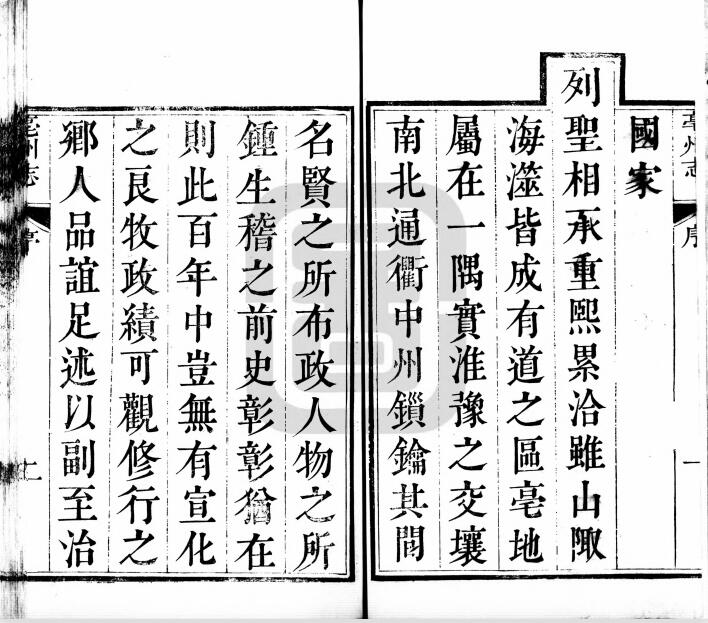 亳州志
序
一
國家
列聖相承重熙累洽雖山陬
海澨皆成有道之區亳地
屬在一隅實淮豫之交壤
南北通衢中州鎖鑰其間
名賢之所布政人物之所
鍾生稽之前史彰彰猶在
則此百年中豈無有宣化
之良牧政績可觀修行之
鄉人品誼足述以副至治
亳州志
序